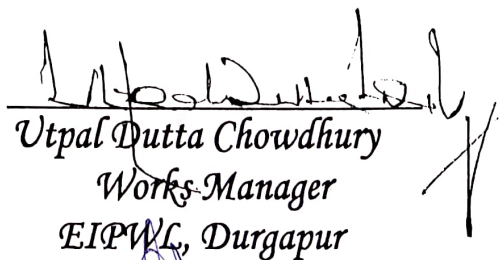 Utpal Dutta Chowdhury
Works Manager
EIPWL, Durgapur